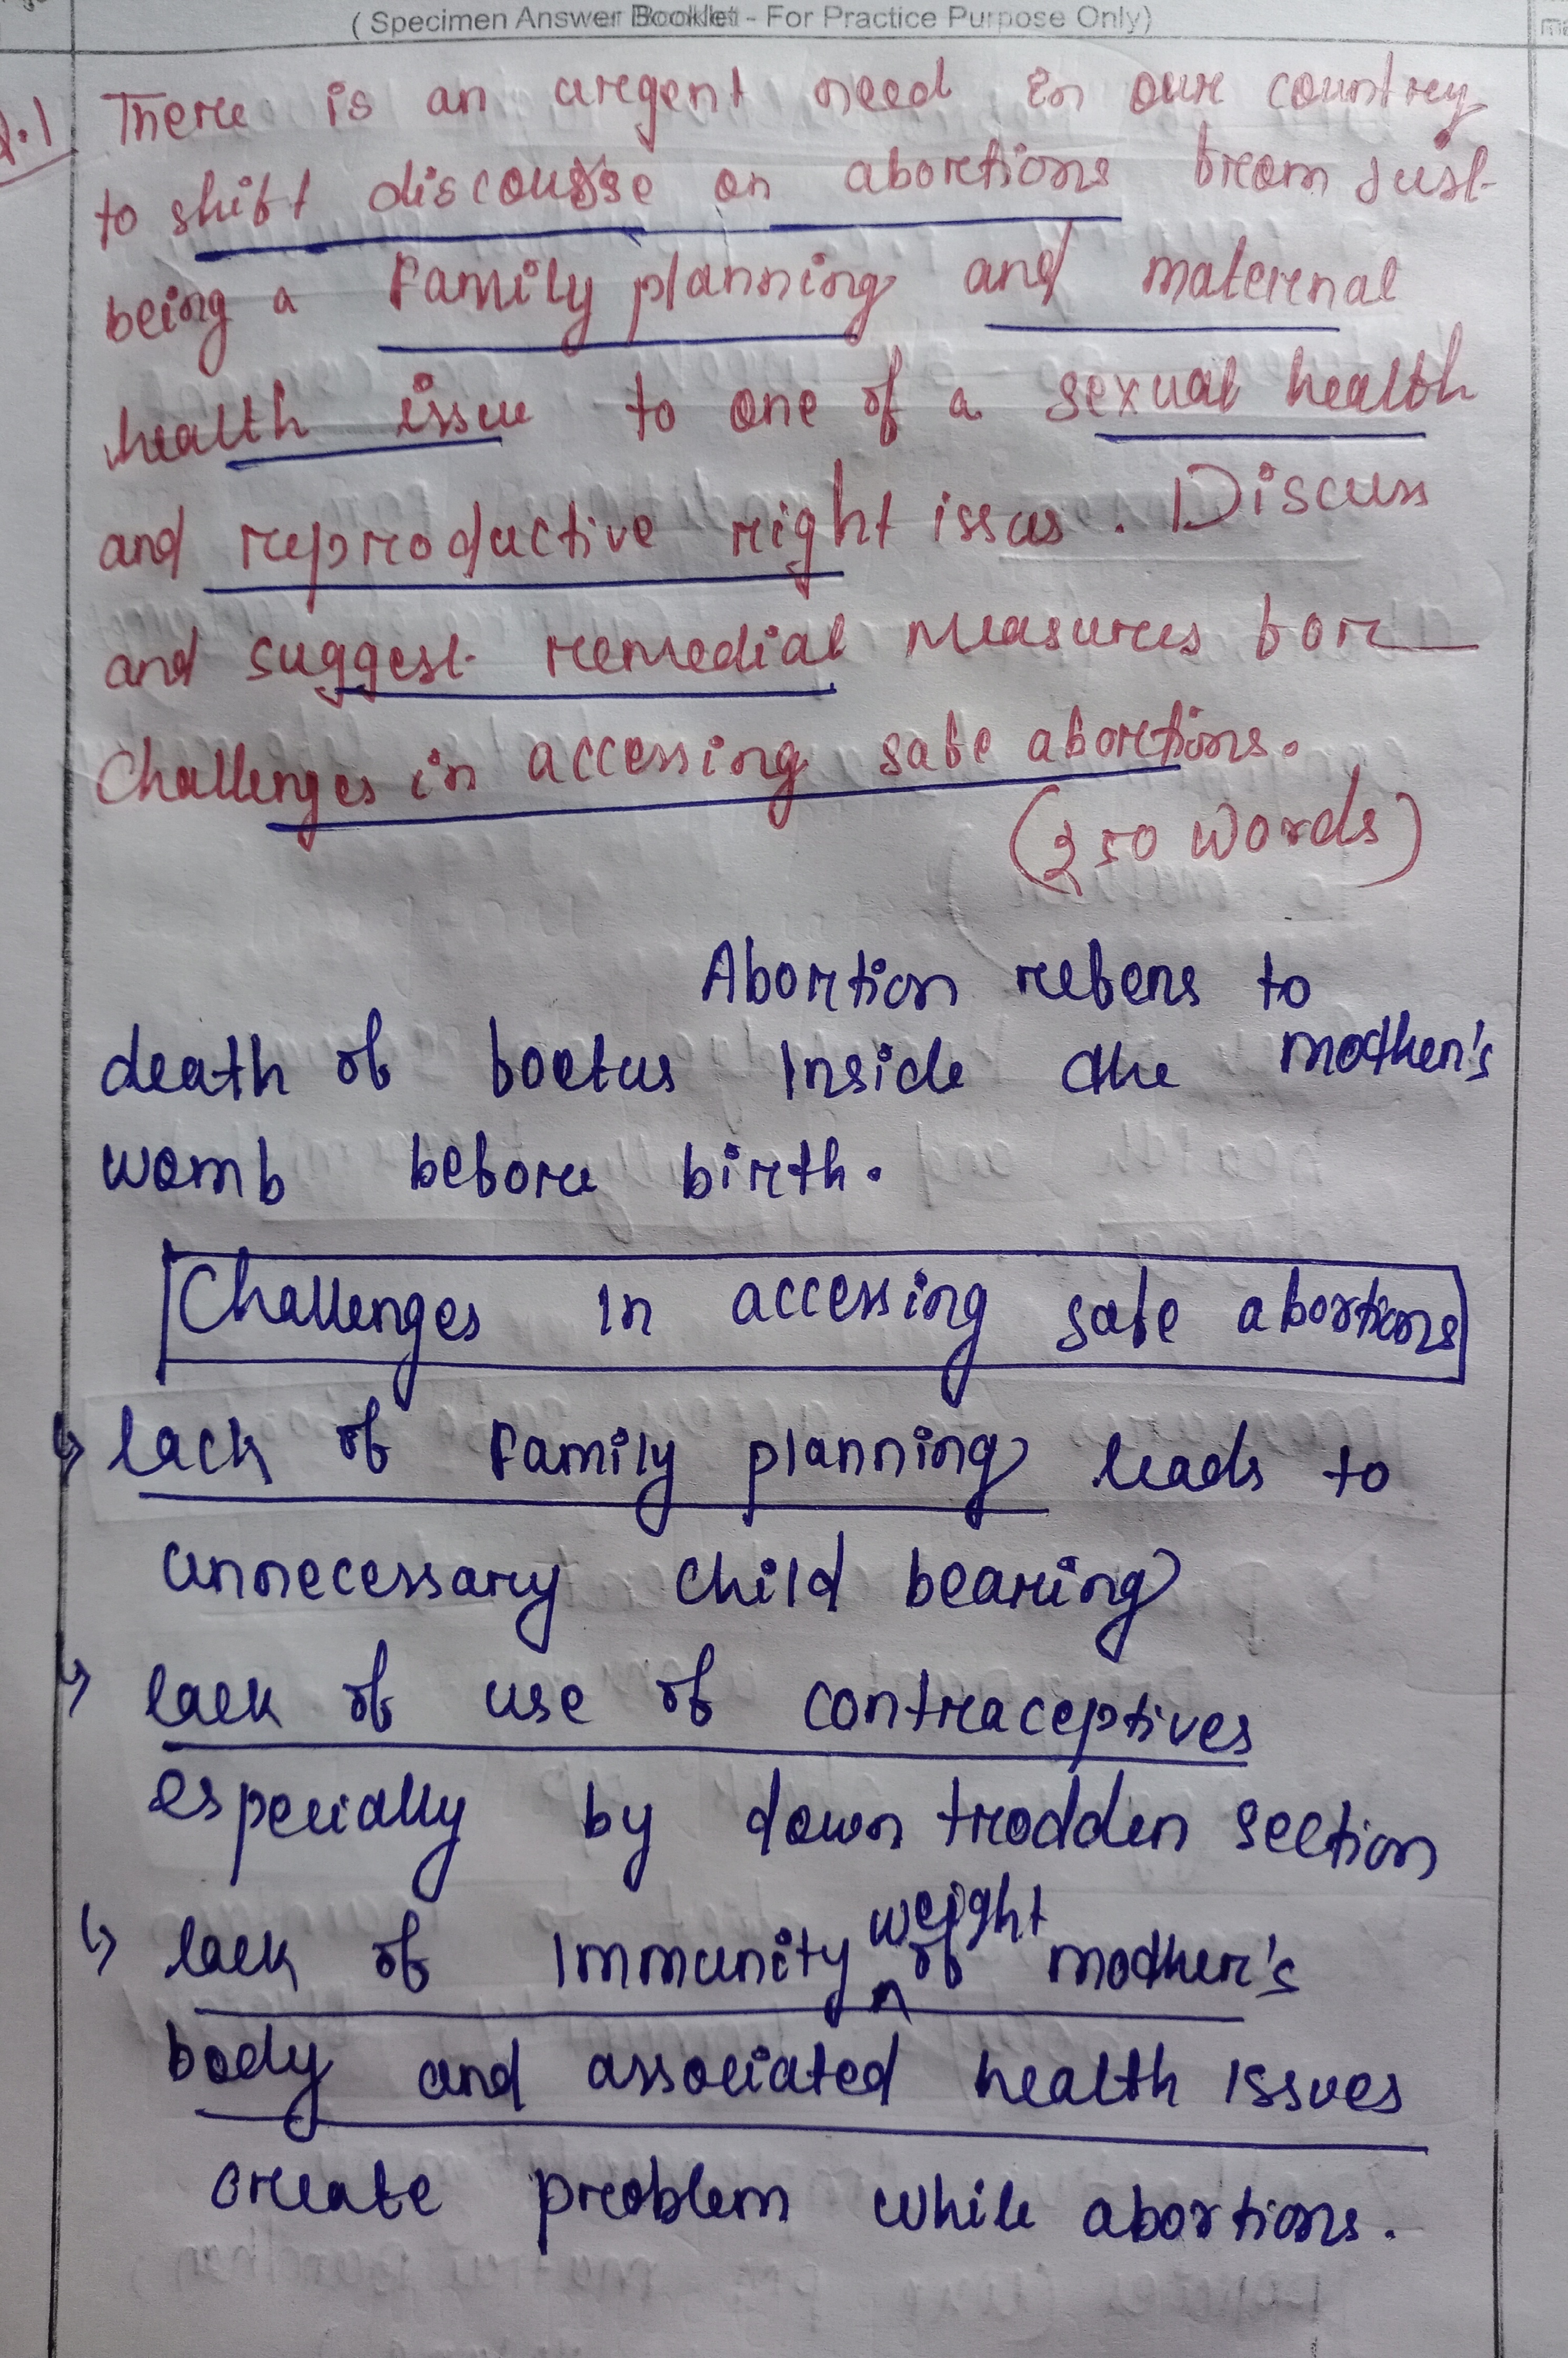 ( Specimen Answer Booklet - For Practice Purpose Only)
Q.1 There is an urgent need in our country
to shift discourse on abortions from Just
being a Family planning and maternal
health issue to one of a sexual health
and reproductive right issus. Discuss
and suggest remedial measures for
Challenges in accessing safe abortions.
(250 words)
Abortion refers to
death of foetus Inside the mother's
womb before birth.
Challenges In accessing safe abortions
↳ lack of Family planning leads to
unnecessary child bearing
↳ lack of use of contraceptives
especially by down trodden section
↳ lack of Immunity weight of mother's
body and associated health Issues
create problem while abortions.